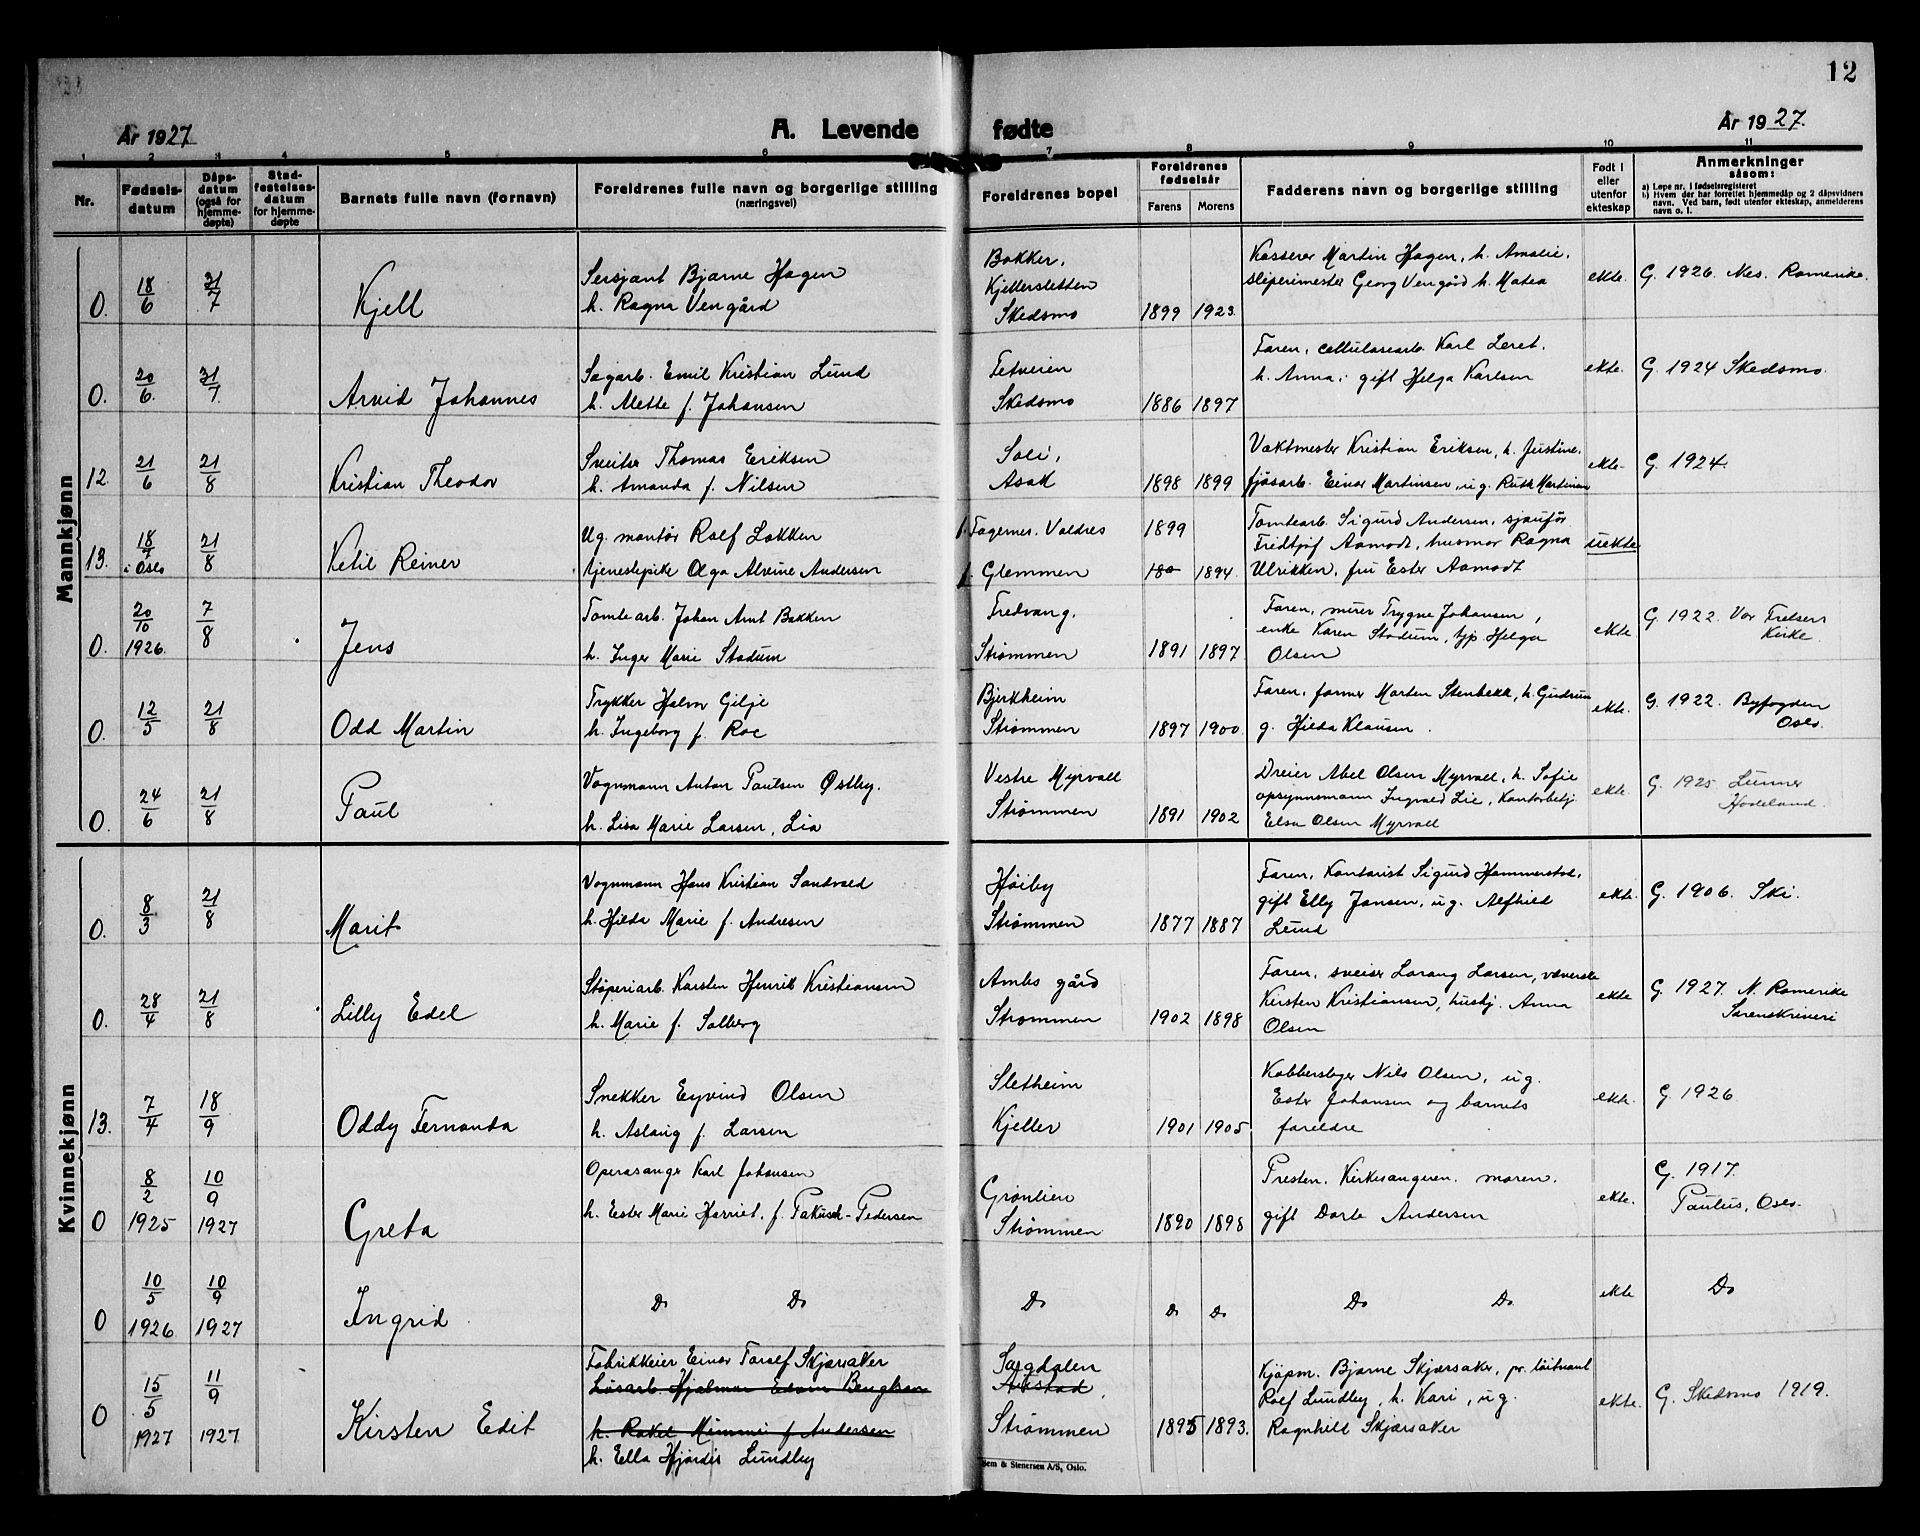 12
År 1927
A. Levende fødte
År 1927.
1 2 3 4 5 6 7 8 9 10 11
Nr.
Fødsels-
datum
Dåps-
datum
(også for
hjemme-
døpte)
Stad-
festelses-
datum
for hjemme-
døpte
Barnets fulle navn (fornavn)
Foreldrenes fulle navn og borgerlige stilling
(næringsvei)
Foreldrenes bopel
Foreldrenes
fødselsår
Farens
Morens
Fadderens navn og borgerlige stilling
Født i
eller
utenfor
ekteskap
Anmerkninger
såsom:
a) Løpe nr. i fødselsregisteret
b) Hvem der har forrettet hjemmedåp og 2 dåpsvidners
navn. Ved barn, født utenfor ekteskap, anmelderens
navn o. l.
Mannkjønn
0. 18/6 31/7
Kjell
Sersjant Bjarne Hagen
h. Ragna Vengård
Bakker,
Kjellersletten
Skedsmo
1899 1923.
Kasserer Martin Hagen, h. Amalie,
sliperimester Georg Vengård h. Matea
ekte.
G. 1926. Nes. Romerike.
0. 20/6. 31/7
Arvid Johannes
Sagarb. Emil Kristian Lund
h. Mette f. Johansen
Tetveien
Skedsmo
1886 1897
Faren, cellulosearb. Karl Leret,
h. Anna, gift Helga Karlsen
ekte.
G. 1924 Skedsmo.
12 21/6 21/8
Kristian Theodor
Sveitser Thomas Eriksen
h. Amanda f. Nilsen
Soli,
Asak
1898 1899
Vaktmester Kristian Eriksen, h. Justine,
fjøsarb. Einar Martinsen, ug. Ruth Martinsen
ekte-
G. 1924.
13. 18/7 i Oslo 21/8
Ketil Reiner
Ug. montør Rolf Løkken
tjenestepike Olga Alvine Andersen
f. Fagernes, Valdres
f. Glemmen
1899
1894.
Tomtearb. Sigurd Andersen, sjaufør
Fridtjof Aamodt, husmor Ragna
Ulrikken, fru Ester Aamodt
uekte
0. 20/10 1926. 7/8
Jens
Tomtearb. Johan Arnt Bakken
h. Inger Marie Stadum
Fredvang,
Strømmen
1891 1897
Faren, murer Trygve Johansen,
enke Karen Stadum, tjp. Helga
Olsen
ekte
G. 1922. Vor Frelsers
Kirke.
0. 12/5 21/8
Odd Martin
Trykker Halvor Gilje
h. Ingeborg f. Roe
Bjerkheim
Strømmen
1897 1900
Faren, former Morten Stenbekk, h. Gudrun
g. Hilda Klausen.
ekte.
G. 1922. Byfogden
Oslo.
0. 24/6 21/8
Paul
Vognmann Anton Paulsen Østby,
h. Lisa Marie Larsen, Lia
Vestre Myrvoll
Strømmen
1891 1902
Dreier Abel Olsen Myrvoll, h. Sofie
opsynsmann Ingvald Lie, Kontorbetj.
Elsa Olsen Myrvoll
ekte.
G. 1925 Lunner
Hadeland.
Kvinnekjønn
0. 8/3 21/8
Marit
Vognmann Hans Kristian Sandvold
h. Hilda Marie f. Andresen
Høiby
Strømmen
1877 1887
Faren, Kontorist Sigurd Hammerstad,
gift Elly Jansen, ug. Alfhild
Lund
ekte.
G. 1906. Ski.
0. 28/4 21/8
Lilly Edel
Støperiarb. Karsten Henrik Kristiansen
h. Marie f. Solberg
Ambs gård
Strømmen
1902 1898
Faren, sveiser Larang Larsen, væverske
Kirsten Kristiansen, hushj. Anna
Olsen
ekte
G. 1927. N. Romerike
Sorenskriveri
13. 7/4 18/9
Oddy Fernanda
Snekker Eyvind Olsen
h. Aslaug f. Larsen
Sletheim
Kjeller
1901 1905
Kobberslager Nils Olsen, ug.
Ester Johansen og barnets
foreldre
ekte.
G. 1926.
0 8/2 1925 10/9 1927
Greta
Operasanger Karl Johansen
h. Ester Marie Harriet, f. Pedersen
Grønlien
Strømmen
1890 1898
Presten, Kirkesangeren, moren,
gift Dorte Andersen
ekte.
G. 1917.
Paulus, Oslo.
0 10/5 1926 10/9 1927
Ingrid
Do Do
Do
Do Do
Do Do
ekte
Do
0 15/5 1927 11/9 1927
Kirsten Edit
Fabrikkeier Einar Torolf Skjærsaker
Løsarb. Hjalmar Edvin Bengtson
h. Rakel Mimmi f. Andersen
h. Ella Hjørdis Lundby
Sagdalen
Akstad,
Strømmen
1895 1893.
Kjøpm. Bjarne Skjærsaker, pr. løitnant
Rolf Lundby, h. Kari, ug.
Ragnhild Skjærsaker
ekte.
G. Skedsmo 1919.
Sem & Stenersen A/S, Oslo.